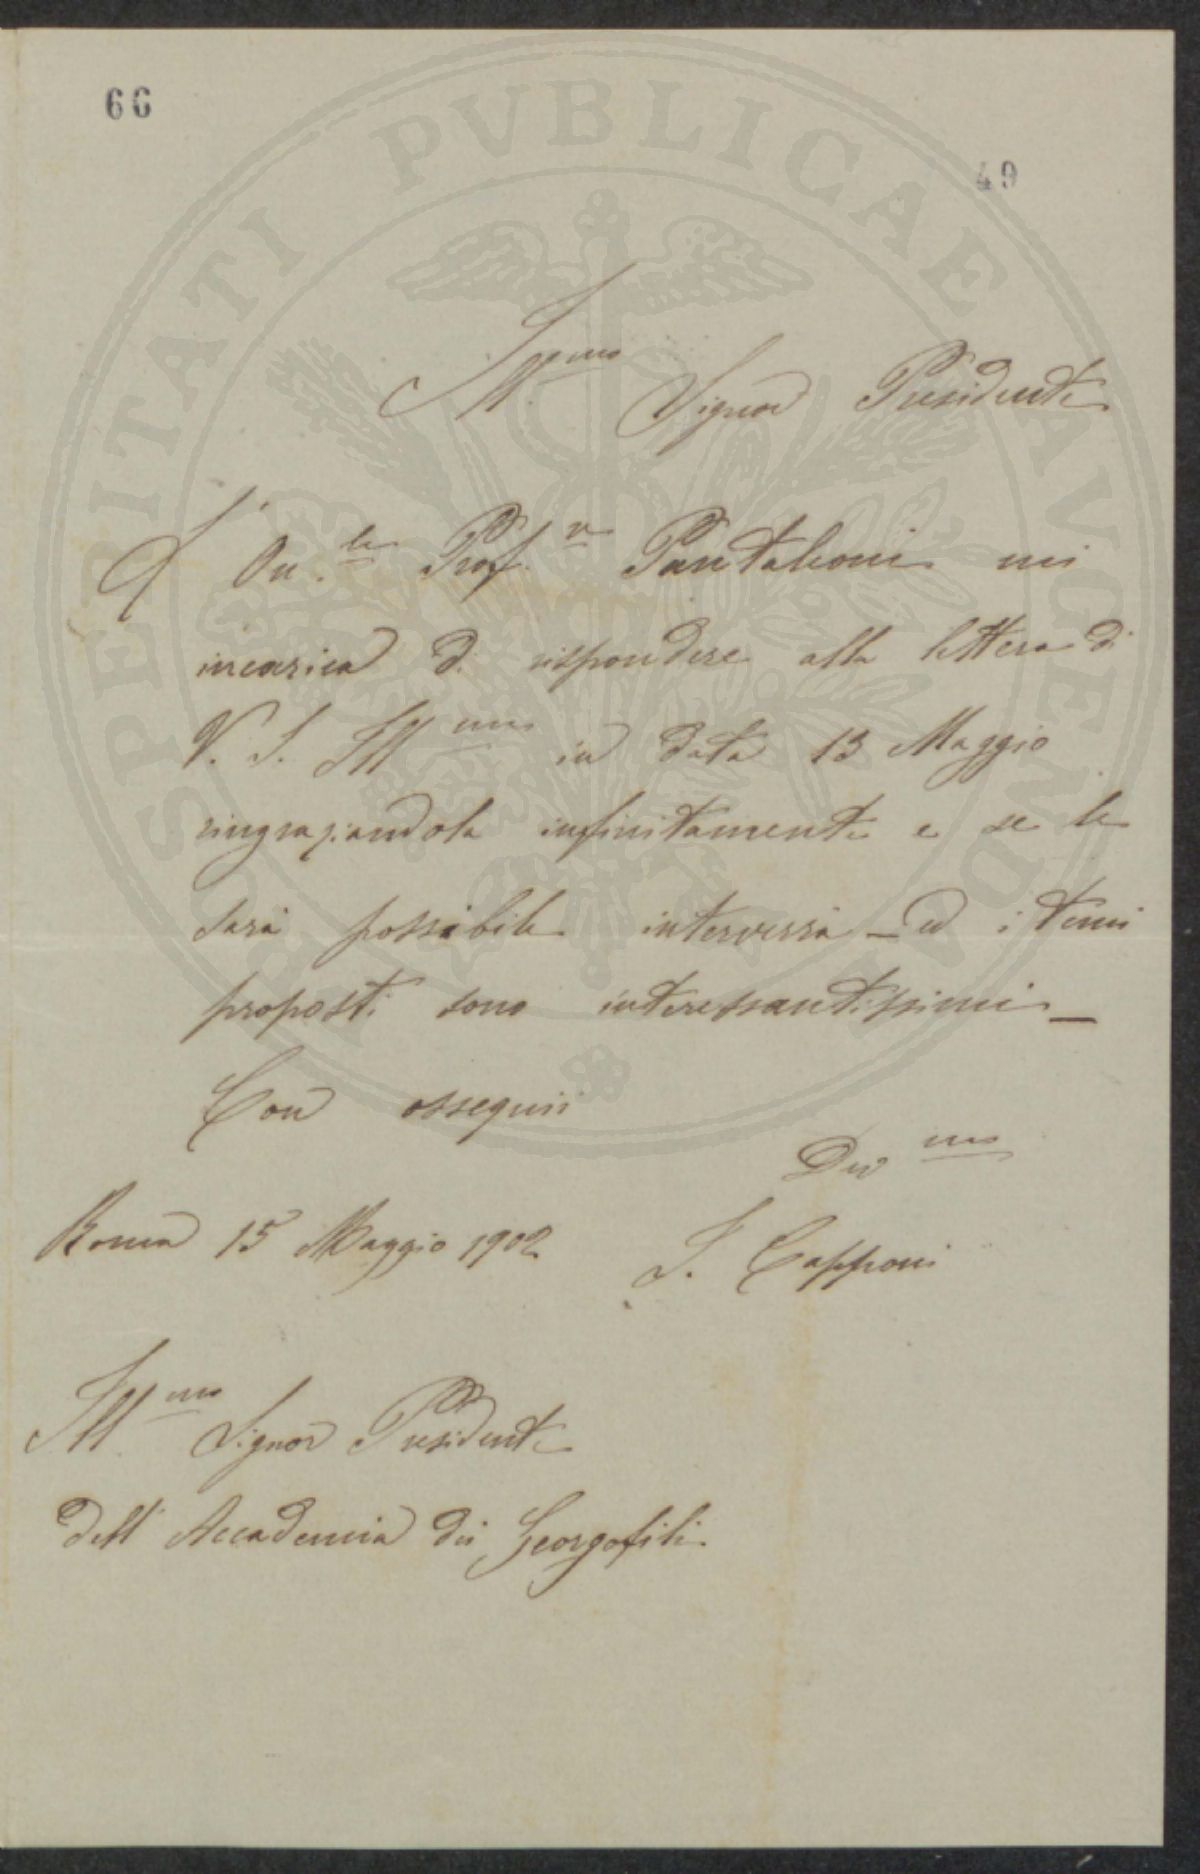 66
49
PROSPERITATI PVBLICAE AVGENDAE
Ill.mo Signor Presidente
L'On.le Prof.re Pantaleoni mi
incarica di rispondere alla lettera di
V. S. Ill.ma in data 13 Maggio
ringraziandola infinitamente e se le
sarà possibile interverrà _ ed i temi
proposti sono interessantissimi _
Con ossequii
Dev.mo
Roma 15 Maggio 1902
J. Capponi
Ill.mo Signor Presidente
dell'Accademia dei Georgofili